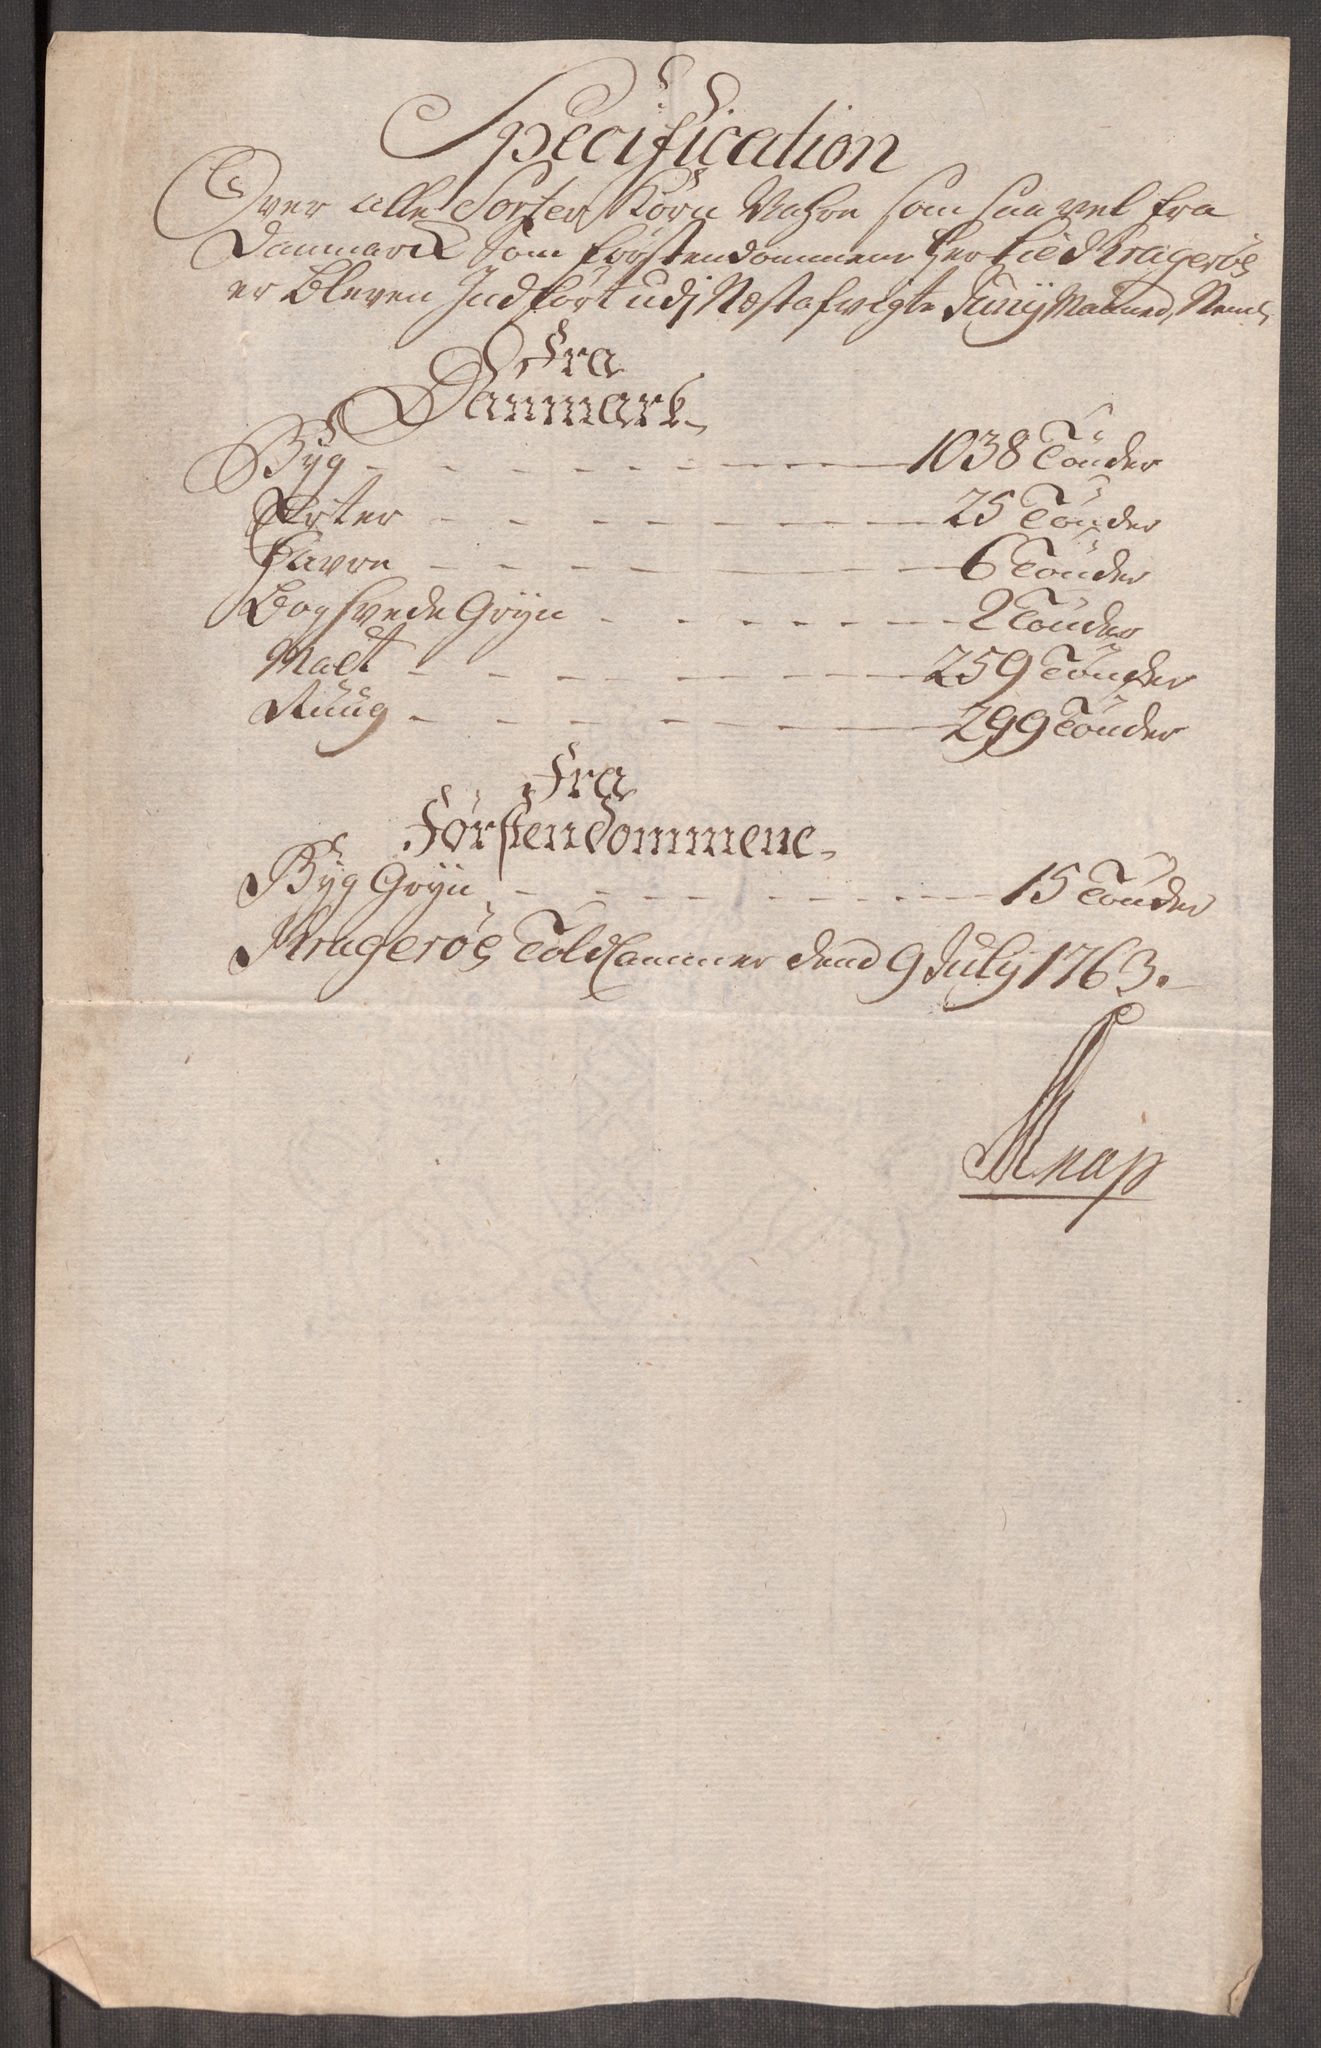 Specification
Over alle Sorter Korn Vahre som saa vel fra
Danmarck som førstendommene her tied Kragerøe
er bleven Indført udj Næstafvigte Junij Maaned, Neml
Fra
Danmark
Byg 1038 Tönder
Erter 25 Tönder
Havre 6 Tönder
Boghvede Gryn 2 Tönder
Malt 259 Tönder
Ruug 299 Tönder
Fra
Førstendommene
Byg Gryn 15 Tönder
Kragerøe Told Cammer dend 9 July 1763.
Knap